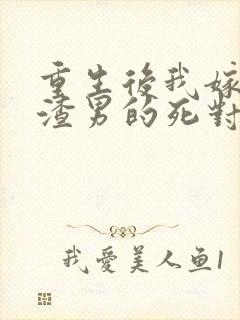 重生後我嫁
渣男的死對
我愛美人鱼1